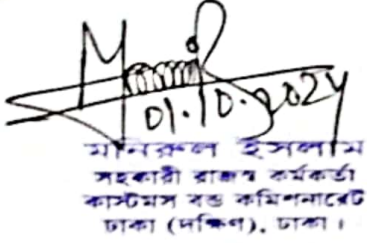 01.10.2024
মনিরুল ইসলাম
সহকারী রাজস্ব কর্মকর্তা
কাস্টমস বন্ড কমিশনারেট
ঢাকা (দক্ষিণ), ঢাকা।